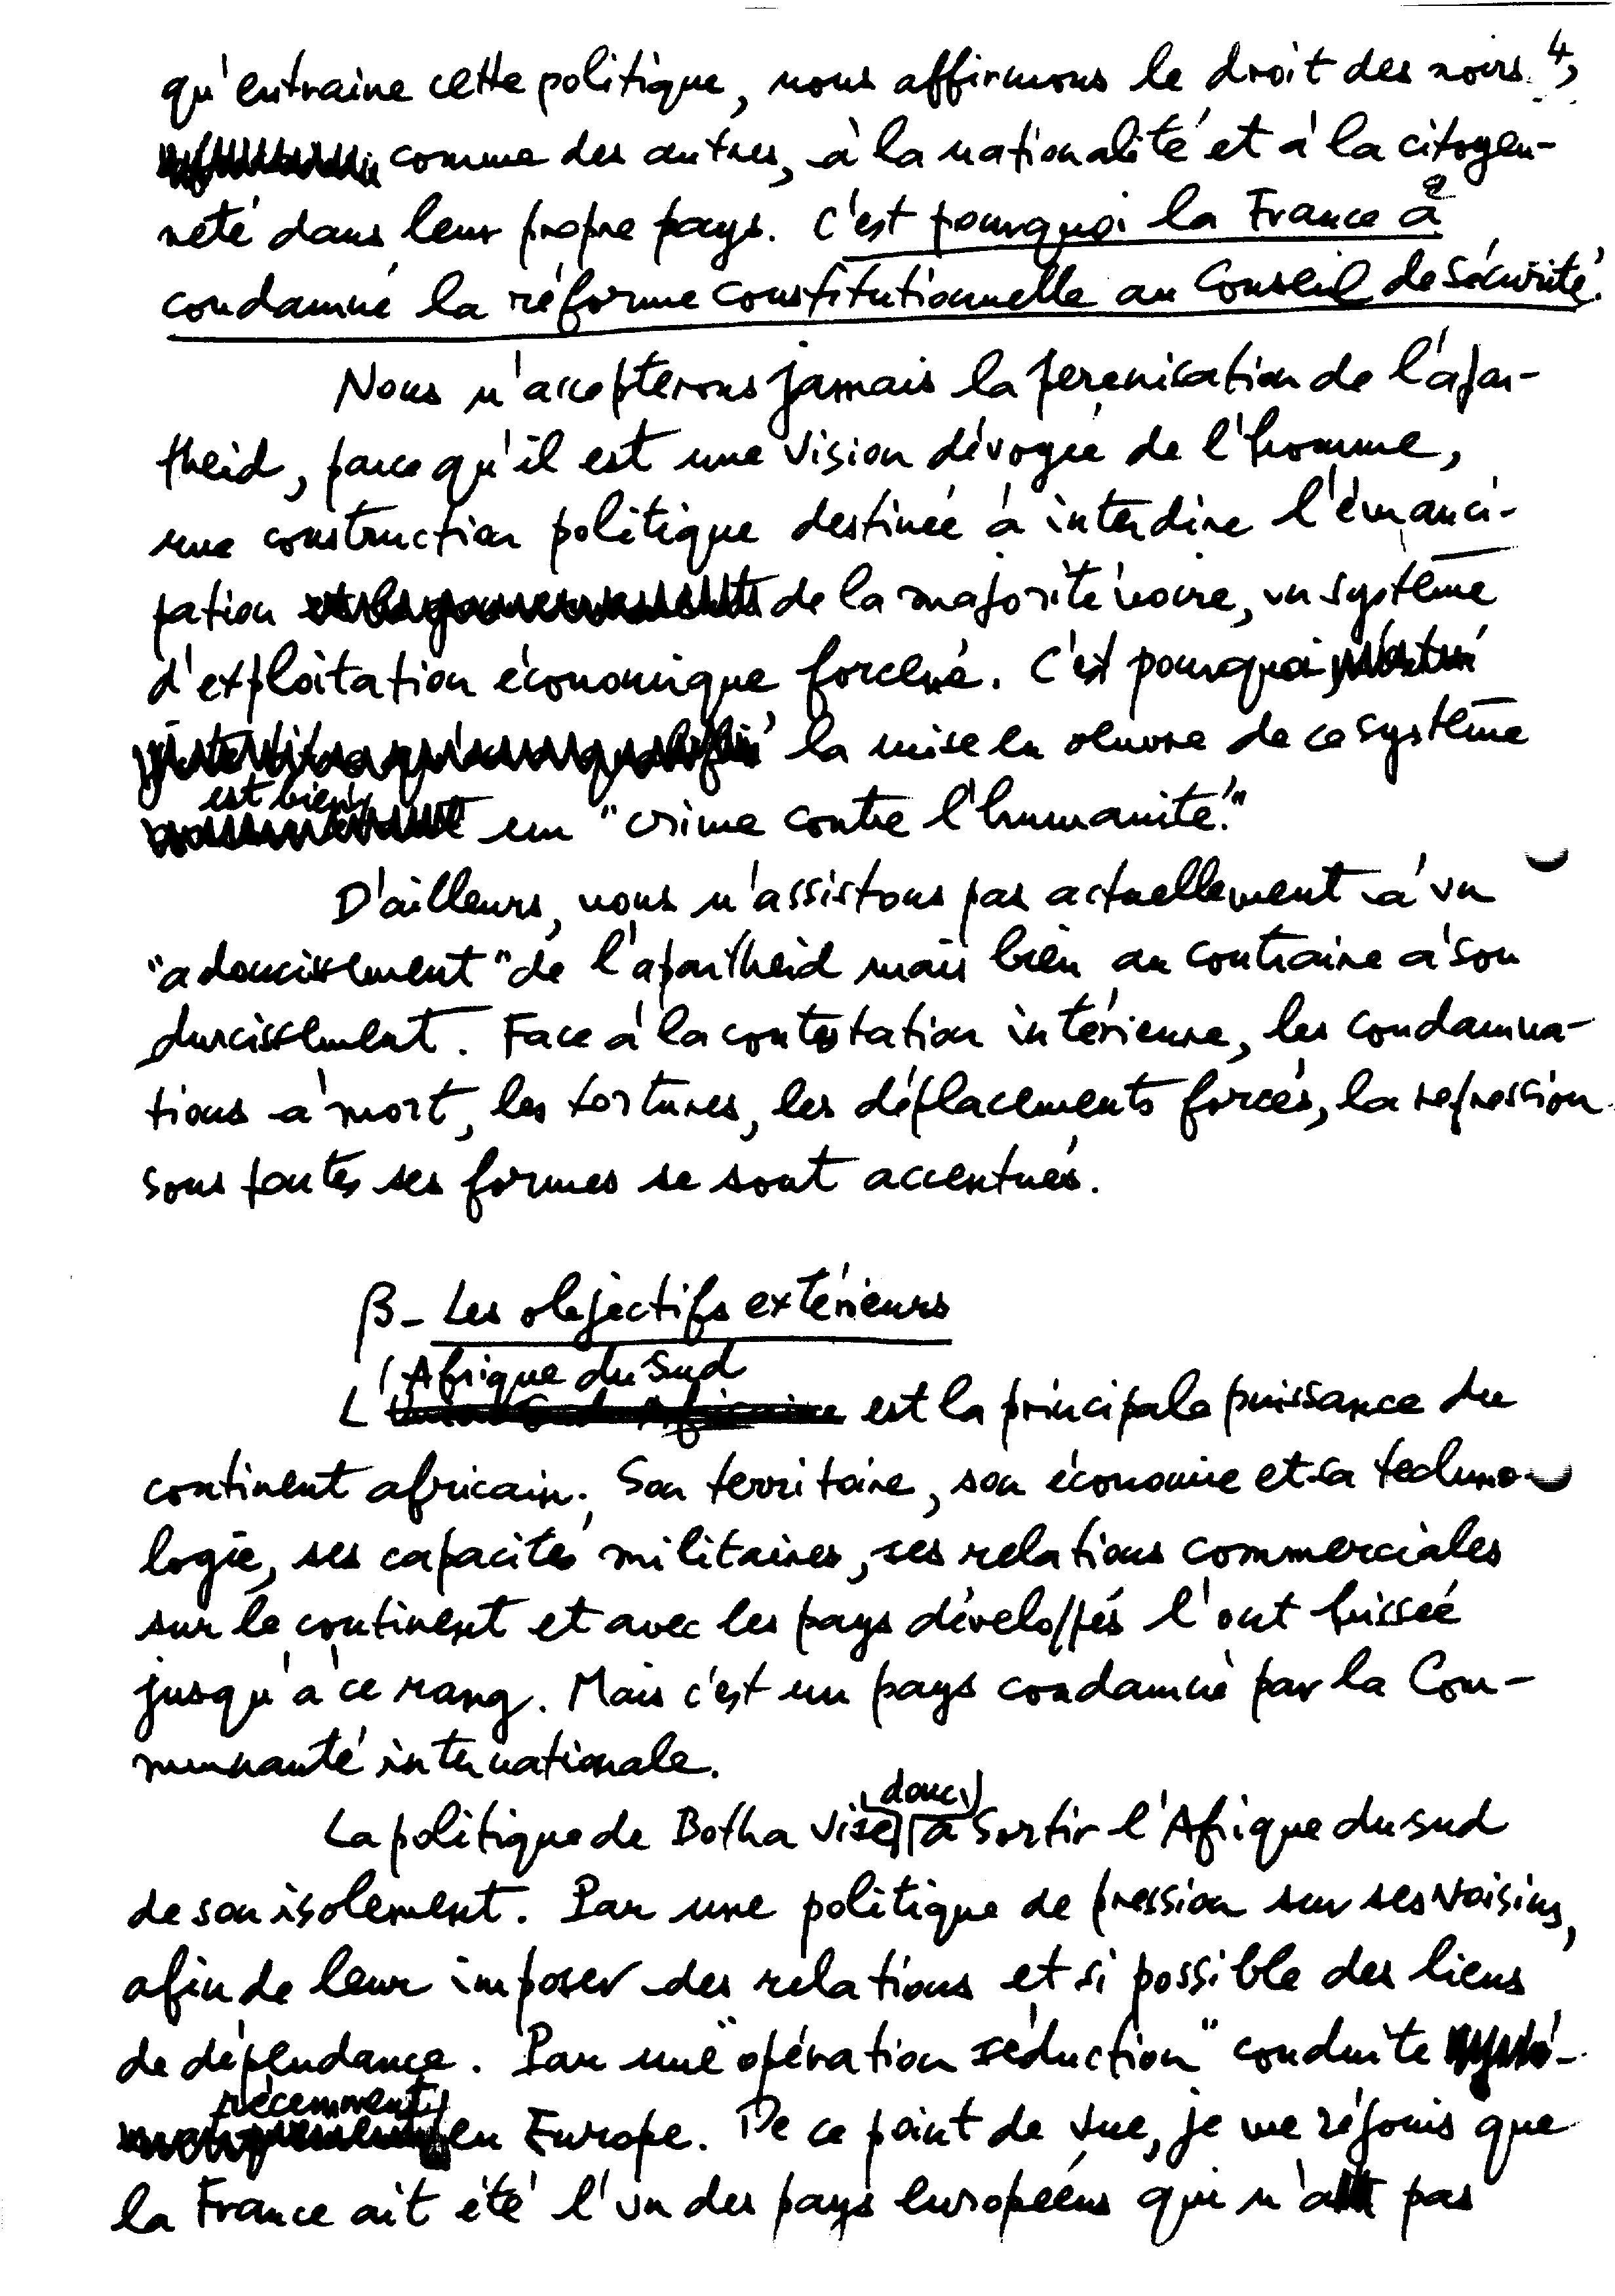 4
qu'entraine cette politique, nous affirmons le droit des noirs,
comme des autres, à la nationalité et à la citoyen-
neté dans leur propre pays. C'est pourquoi la France a
condamné la réforme constitutionnelle au Conseil de Sécurité.
Nous n'accepterons jamais la perenisation de l'apar-
theid, parce qu'il est une vision dévoyée de l'homme,
une construction politique destinée à interdire l'émanci-
pation de la majorité noire, un système
d'exploitation économique forcené. C'est pourquoi
la mise en oeuvre de ce système
est bien un "crime contre l'humanité."
D'ailleurs, nous n'assistons pas actuellement à un
"adoucissement" de l'apartheid mais bien au contraire à son
durcissement. Face à la contestation intérieure, les condamna-
tions à mort, les tortures, les déplacements forcés, la repression
sous toutes ses formes se sont accentués.
β- Les objectifs extérieurs
L'Afrique du Sud est la principale puissance du
continent africain. Son territoire, son économie et sa techno-
logie, ses capacités militaires, ses relations commerciales
sur le continent et avec les pays développés l'ont hissée
jusqu'à ce rang. Mais c'est un pays condamné par la Com-
munauté internationale.
La politique de Botha vise donc à sortir l'Afrique du Sud
de son isolement. Par une politique de pression sur ses voisins,
afin de leur imposer des relations et si possible des liens
de dépendance. Par une "opération séduction" conduite
récemment en Europe. De ce point de vue, je me réjouis que
la France ait été l'un des pays européens qui n'a pas